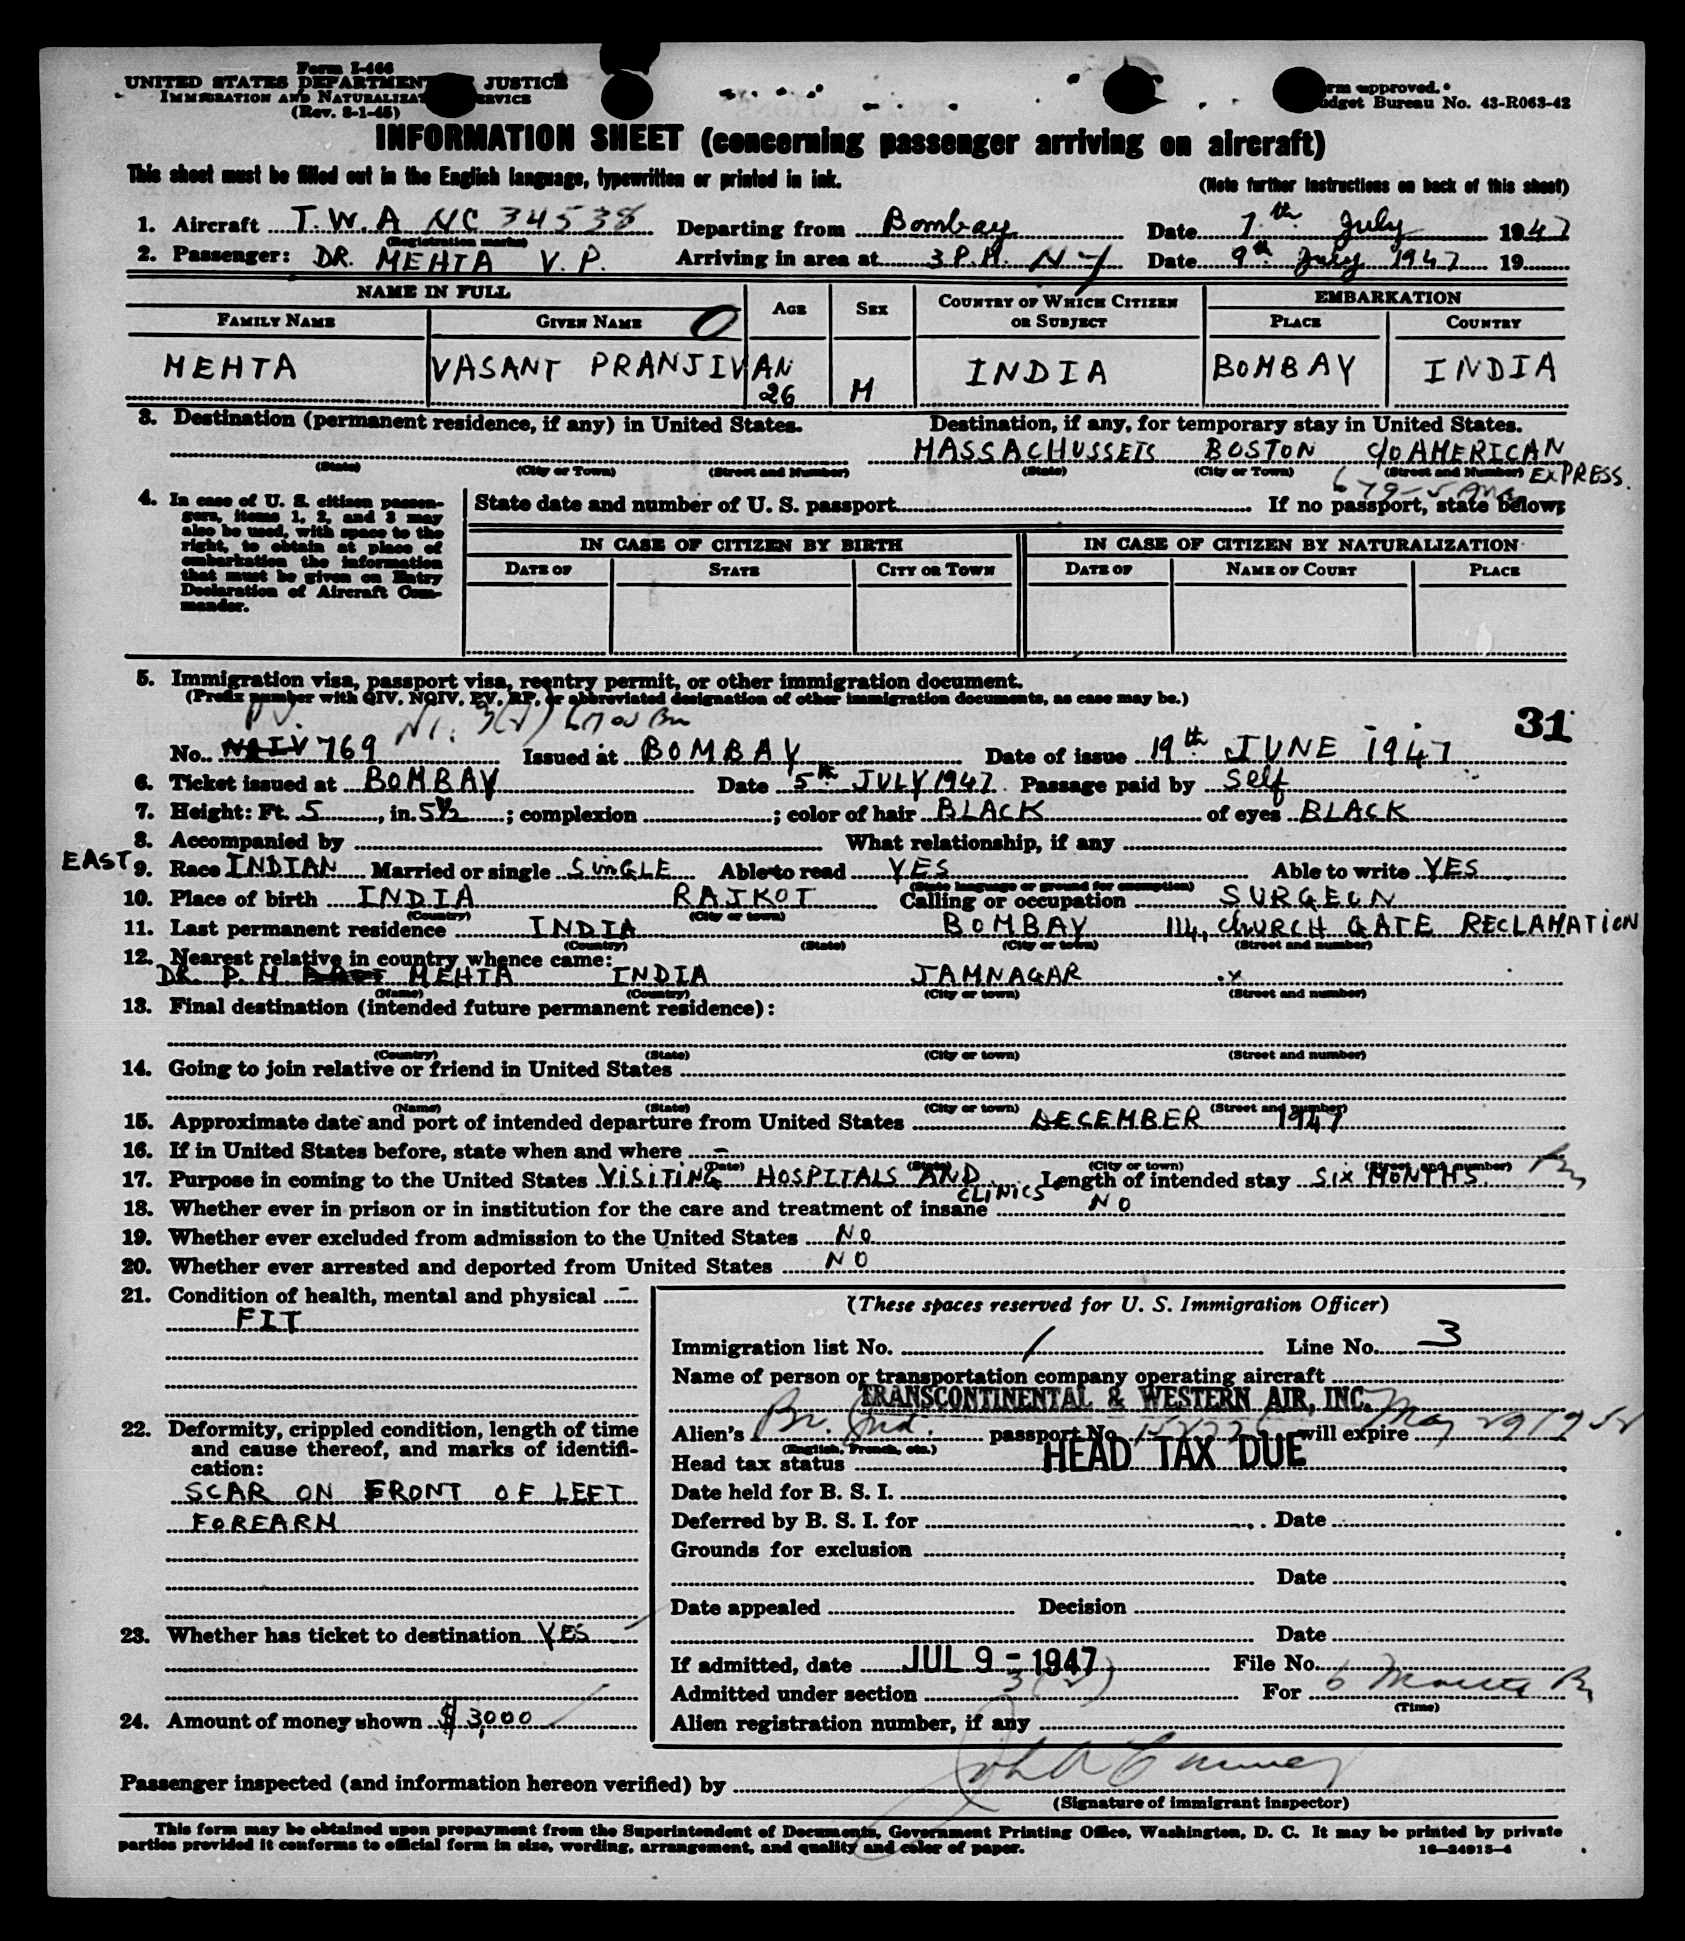 Form I-466
UNITED STATES DEPARTMENT JUSTICE
IMMIGRATION AND NATURALIZAT ERVICE
(Rev. 8-1-45)
rm approved.
udget Bureau No. 43-R063-42
INFORMATION SHEET (concerning passenger arriving on aircraft)
This sheet must be filled out in the English language, typewritten or printed in ink.
(Note further instructions on back of this sheet)
1. Aircraft T.W.A NC 34538 Departing from Bombay Date 7th July 1947
(Registration marks)
2. Passenger: DR. MEHTA V. P. Arriving in area at 3 P.M. N Y Date 9th July 1947 19
NAME IN FULL AGE SEX COUNTRY OF WHICH CITIZEN OR SUBJECT EMBARKATION
FAMILY NAME GIVEN NAME PLACE COUNTRY
MEHTA VASANT PRANJIVAN 26 M INDIA BOMBAY INDIA
3. Destination (permanent residence, if any) in United States. Destination, if any, for temporary stay in United States.
MASSACHUSSETS BOSTON c/o AMERICAN EXPRESS.
(State) (City or Town) (Street and Number) (State) (City or Town) (Street and Number)
4. In case of U. S. citizen passengers, items 1, 2, and 3 may
also be used, with space to the
right, to obtain at place of
embarkation the information
that must be given on Entry
Declaration of Aircraft Commander.
State date and number of U. S. passport If no passport, state below:
IN CASE OF CITIZEN BY BIRTH IN CASE OF CITIZEN BY NATURALIZATION
DATE OF STATE CITY OR TOWN DATE OF NAME OF COURT PLACE
5. Immigration visa, passport visa, reentry permit, or other immigration document.
(Prefix number with QIV, NQIV, PV, RP, or abbreviated designation of other immigration documents, as case may be.)
PV.
31
No. NQIV 769 Issued at BOMBAY Date of issue 19th JUNE 1947
6. Ticket issued at BOMBAY Date 5th JULY 1947. Passage paid by Self
7. Height: Ft. 5, in. 5½; complexion ; color of hair BLACK of eyes BLACK
8. Accompanied by What relationship, if any
EAST
9. Race INDIAN Married or single SINGLE Able to read YES Able to write YES
(State language or ground for exemption)
10. Place of birth INDIA RAJKOT Calling or occupation SURGEON
(Country) (City or town)
11. Last permanent residence INDIA BOMBAY 114, CHURCH GATE RECLAMATION
(Country) (State) (City or town) (Street and number)
12. Nearest relative in country whence came:
DR P. M MEHTA INDIA JAMNAGAR x
(Name) (Country) (City or town) (Street and number)
13. Final destination (intended future permanent residence):
(Country) (State) (City or town) (Street and number)
14. Going to join relative or friend in United States
(Name) (State) (City or town) (Street and number)
15. Approximate date and port of intended departure from United States DECEMBER 1947
16. If in United States before, state when and where –
(Date) (State) (City or town) (Street and number)
17. Purpose in coming to the United States VISITING HOSPITALS AND CLINICS Length of intended stay SIX MONTHS.
18. Whether ever in prison or in institution for the care and treatment of insane NO
19. Whether ever excluded from admission to the United States NO
20. Whether ever arrested and deported from United States NO
21. Condition of health, mental and physical
FIT
22. Deformity, crippled condition, length of time
and cause thereof, and marks of identification:
SCAR ON FRONT OF LEFT
FOREARM
23. Whether has ticket to destination YES
24. Amount of money shown $ 3,000
(These spaces reserved for U. S. Immigration Officer)
Immigration list No. 1 Line No. 3
Name of person or transportation company operating aircraft
TRANSCONTINENTAL & WESTERN AIR, INC.
Alien's Br. Ind. passport No. will expire May 29 1952
(English, French, etc.)
Head tax status HEAD TAX DUE
Date held for B. S. I.
Deferred by B. S. I. for Date
Grounds for exclusion
Date
Date appealed Decision
Date
If admitted, date JUL 9 - 1947 File No.
Admitted under section 3(2) For 6 Months
(Time)
Alien registration number, if any
Passenger inspected (and information hereon verified) by
(Signature of immigrant inspector)
This form may be obtained upon prepayment from the Superintendent of Documents, Government Printing Office, Washington, D. C. It may be printed by private
parties provided it conforms to official form in size, wording, arrangement, and quality and color of paper.
16—24915-4